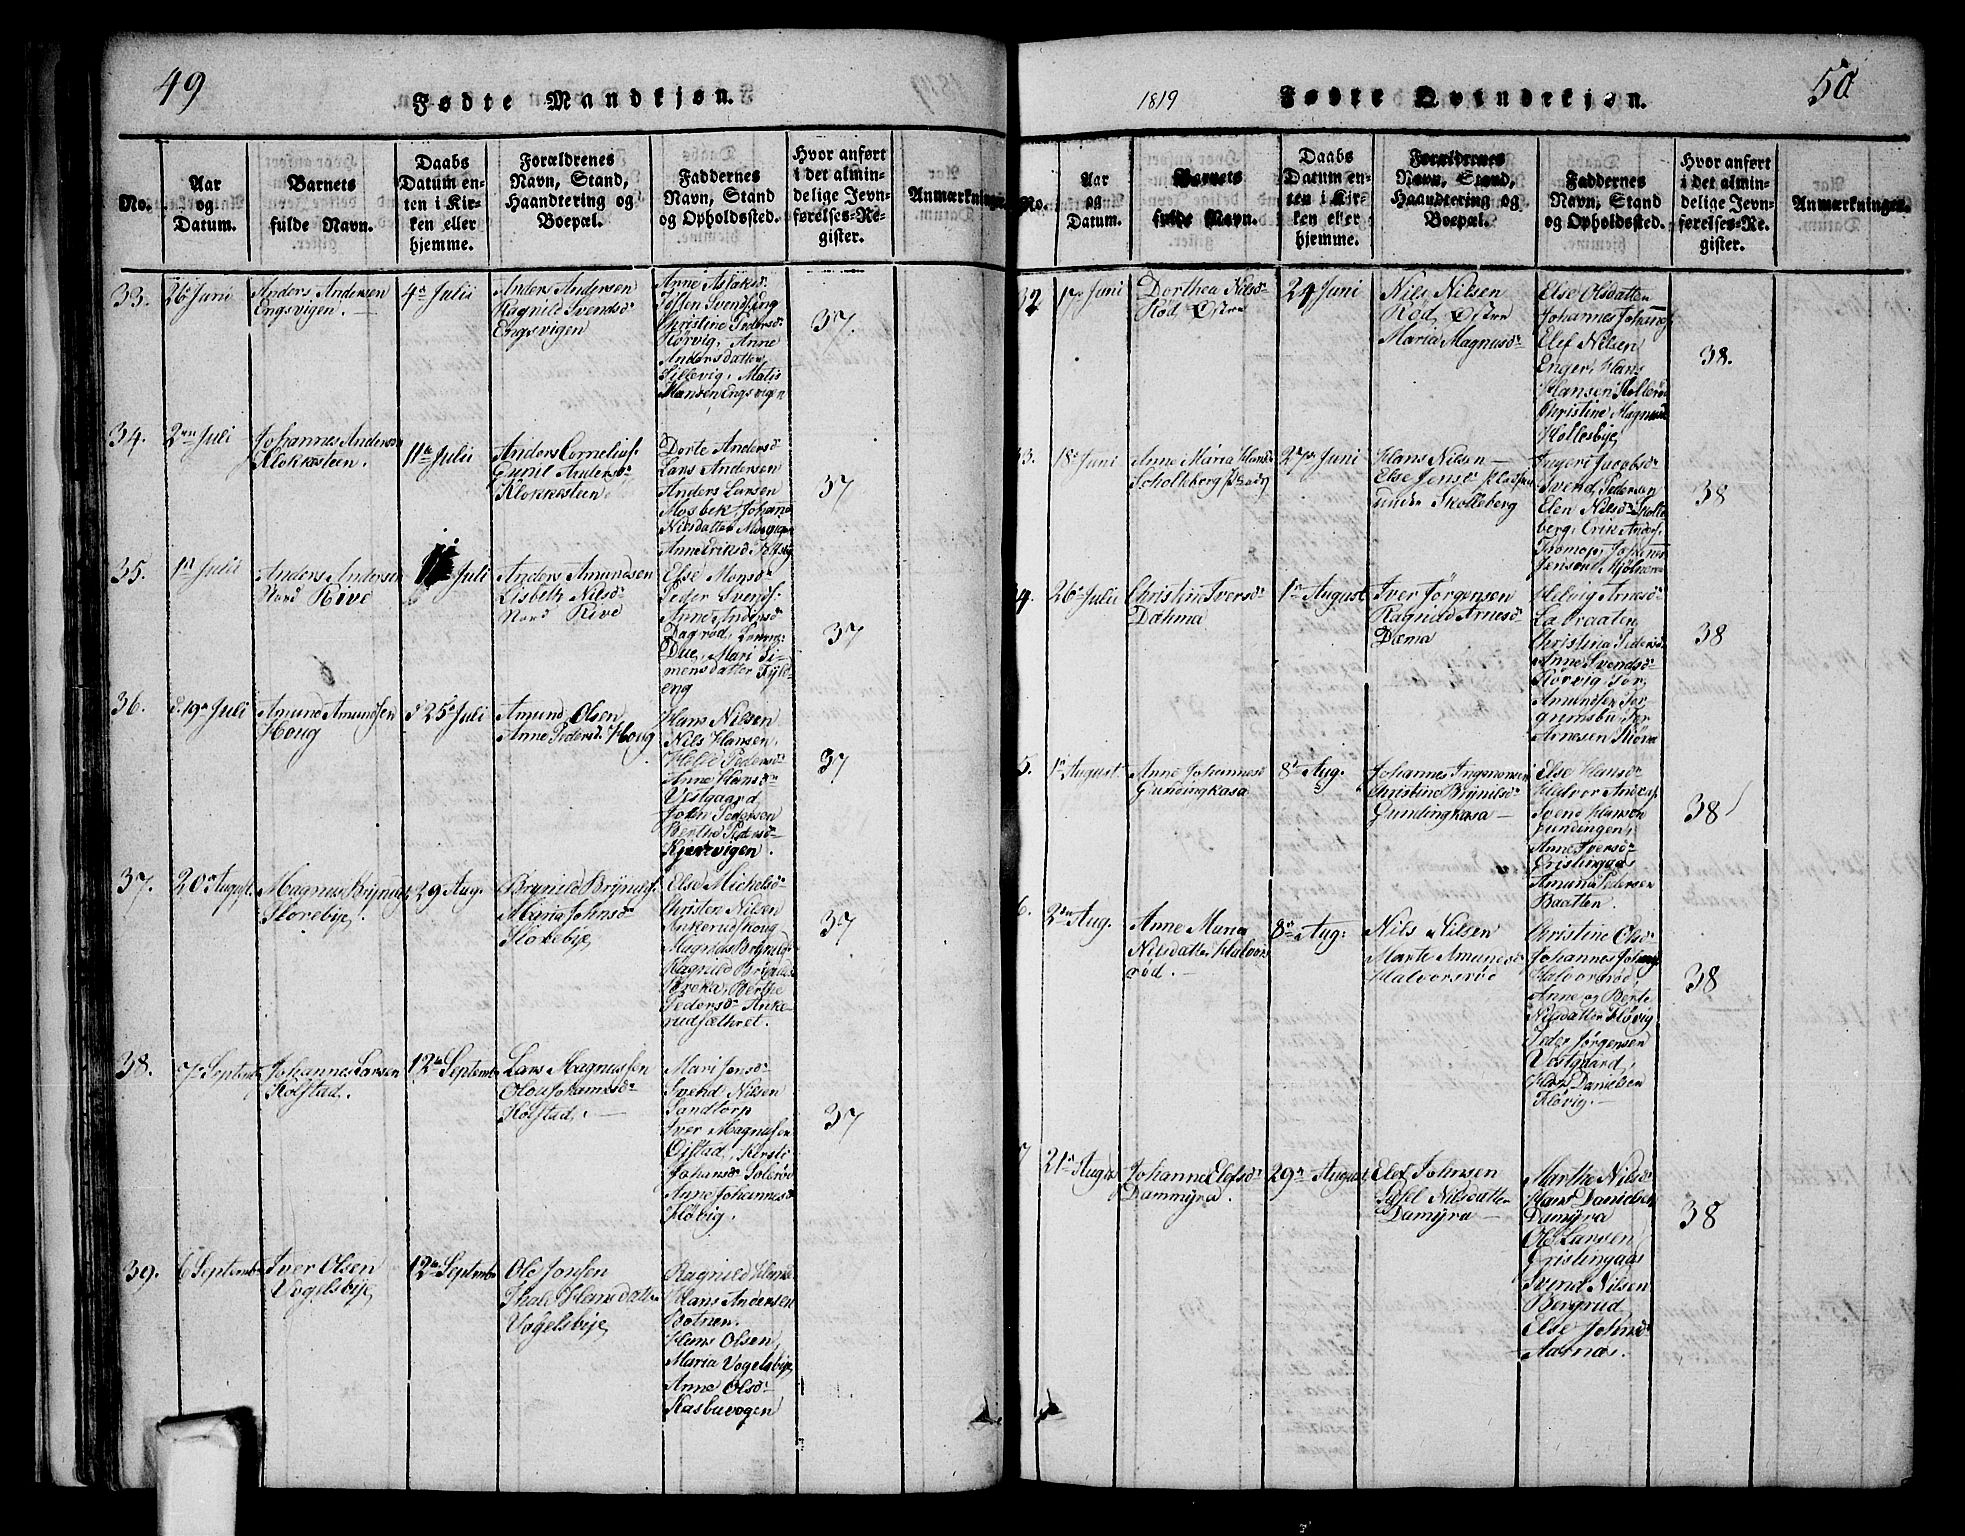 49
Fødte Mandkjøn.
No.
Aar
og
Datum.
Barnets
fulde Navn.
Daabs
Datum en-
ten i Kir-
ken eller
hjemme.
Forældrenes
Navn, Stand,
Haandtering og
Boepæl.
Faddernes
Navn, Stand
og Opholdssted.
Hvor anført
i det almin-
delige Jevn-
førelses-Re-
gister.
Anmærkninger
33.
26 Juni
Anders Andersen
Engsvigen.
4 Julii
Anders Andersen
Ragnild Svendsd
Engsvigen
Anne Aslaksd
Christine Pedersd
Körvig, Anne
Andersdatter
Sillevig, Matis
Hansen Engsvigen
37.
34.
2 Juli
Johannes Andersen
Klokkesteen.
11 Julii
Anders Cornelius.
Gunil Andersd
Klokkesteen
Dorte Andersd
Lars Andersen
Anders Larsen
Mosbek, Johann
Nilsdatter
Anne Eriksd
37
35.
1 Julii
Anders Andersen
Nord Rive
Juli
Anders Amundsen
Lisbeth Nilsd
Nord Rive
Else Monsd
Peder Svends.
Anne Andersd
Dagrød,
Due, Mari Si-
mensdatter Fyld-
eng
37
36.
d. 19 Juli
Amund Amundsen
Houg
d 25 Juli
Amund Olsen,
Anne Pedersd. Houg
Hans Nilsen
Nils Hansen,
Helle Pedersd
Anne Hansd
Vestgaard
John Pedersen
Berthe Pedersd
Kjærvigen.
37
37.
20 August.
Magnus Brynilds
Florebye.
29 Aug.
Brynild Brynilds.
Maria Johnsd
Florebye
Else Mickelsd
Christen Nilsen
Ankerudskoug
Magnus Brynilds.
Ragnild Brynilds
Breka, Berthe
Pedersd Anke-
rudsæthret.
37
38.
7 Septemb.
Johannes Larsen
Kolstad.
12 Septemb
Lars Magnussen
Olou Johannesd
Kolstad.
Mari Jensd
Svend Nilsen
Sandtorp
Iver Magnusen
Oistad, Kirsti
Johansd Solerød
Anne Johannesd
Kløvig.
37
39.
6 Septemb
Iver Olsen
Vogelsbye
12 Septemb
Ole Jonsen
Thale Hansdatter
Vogelsbye
Ragnild Hansd
Hans Andersen
Botner.
Hans Olsen,
Maria Vogelsbye
Anne Olsd
Kasbuvogen
1819
Fødte Qvindekjøn.
50
No.
Aar
og
Datum.
Barnets
fulde Navn.
Daabs
Datum en-
ten i Kir-
ken eller
hjemme.
Forældrenes
Navn, Stand,
Haandtering og
Boepæl.
Faddernes
Navn, Stand
og Opholdssted.
Hvor anført
i det almin-
delige Jevn-
førelses-Re-
gister.
Anmærkninger.
32
17 Juni
Dorthea Nilsd
Rød Østre
24 Juni
Nils Nilsen
Rød Østre
Maria Magnusd
Else Olsdatten
Johannes Johannes
Elef Nilsen
Enger, Hans
Hansen
Christine Magnusd
Hollesbye
38.
33.
18 Juni
Anne Maria Hansd
27 Juni
Hans Nilsen
Else Jensd
under Skolleberg
Ingeri Jacobsd
Svend Pedersen
Elen Nilsd Skolle-
berg, Erik Anders.
38
34.
26 Julii
Christine Iversd
Dæhma
1 August
Iver Jörgensen
Ragnild Arnesd
Dæma
Helvig Arnesd
Labraaten
Christina Pedersd
Anne Svendsd
Körvig, Tor
Amundsen Tor-
grimsbu, Tor
Arnesen
38
5.
1 August
Anne Johannesd
Gundingkasa
8 Aug.
Johannes Ingmonsen
Christine Brynilsd
Gundingkasa
Else Hansd
Halvor Anders
Svend Hansen
Gundingen,
Anne Iversd
Gristingaas
Amund Pedersen
Baatten.
38
6.
2 Aug.
Anne Maria
Nilsdatter Halvors
rød.
8 Aug:
Nils Nilsen
Marte Amundsd
Halvorsrød
Christine Olsd
Johannes Johans
Halvorsrød,
Anne og Berte
Nilsdatter Kløvig
Peder Jörgensen
Vestgaard,
Hans Danielsen
Kløvig.
38
7
21 Augus
Johanne Elefsd
Dammyra.
29 August
Elef Johnsen
Sissel Nilsdatter
Damyra
Marthe Nilsd
Hans Danielsen
Damyra
Ole Larsen
Gristingaas
Svend Nilsen
Bergrud
Else Johnsd
Aasnas.
38